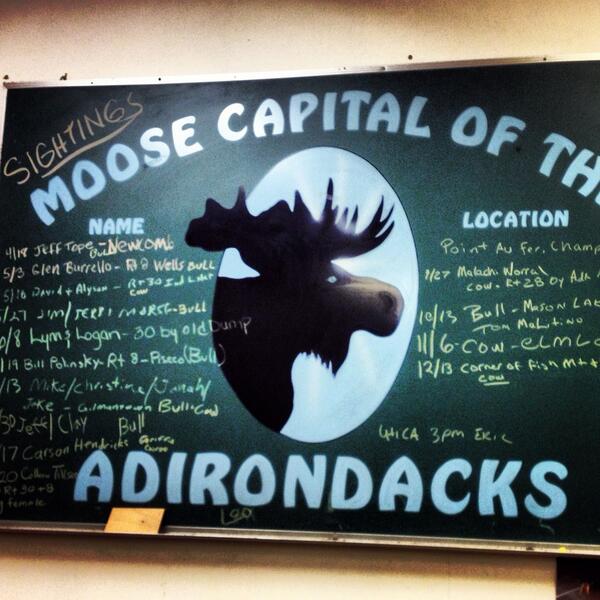 SIGHTINGS
MOOSE CAPITAL OF TH
NAME
4/18 JEFF Tope - Newcomb
Bull
5/3 Glen Burrello - Rt 8 Wells BULL
5/16 David + Alyson - Rt 30
cow
5/27 JIM/JERRI MORSE - Bull
Lynn & Logan - 30 by old Dump
19 Bill Polinsky - Rt 8 - Piseco (Bull)
/13 Mike/Christine/Janah/
Jake - Gilmantown Bull + Cow
Jeff/Clay Bull
/17 Carson Hendricks
Rt 30 + 8
female
LOCATION
Point Au Fer. Champ
Malachi Worral
cow - Rt 28 by Adk
10/13 Bull - Mason LA
11/6 - Cow - ELM L
12/13 corner of Fish Mt
cow
UtiCA 3pm ERIC
ADIRONDACKS